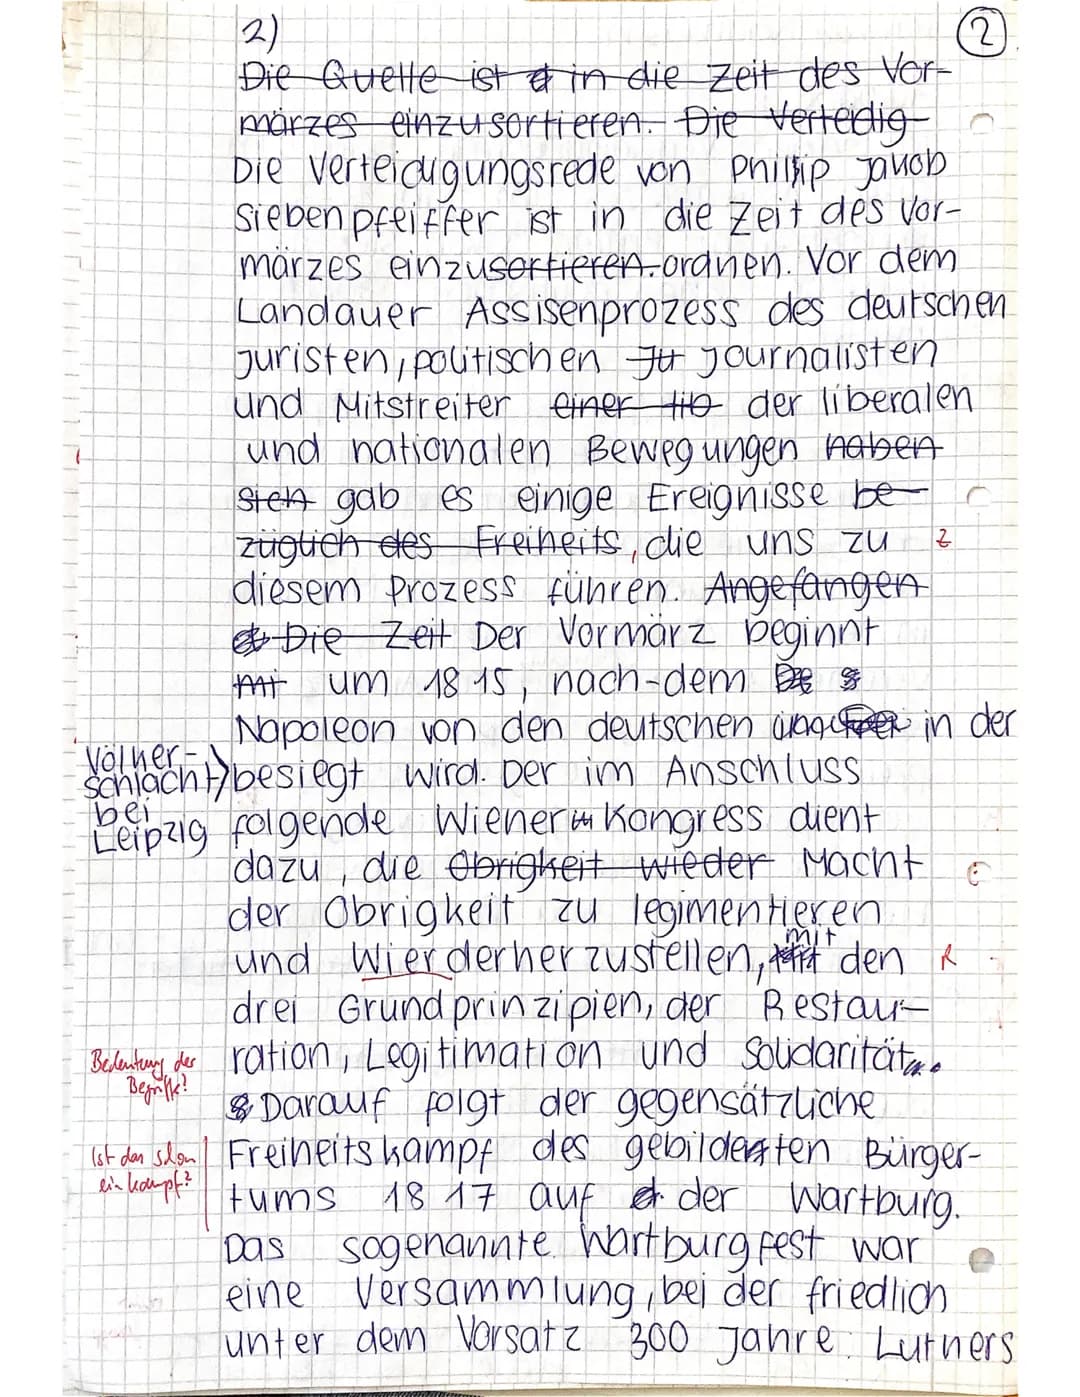 2)
2
Die Quelle ist in die Zeit des Vor-
märzes einzusortieren. Die Verteidig
Die Verteidigungsrede von Phillip Jakob
Siebenpfeiffer ist in die Zeit des Vor-
märzes einzusortieren.ordnen. Vor dem
Landauer Assisenprozess des deutschen
Juristen, politischen Ju Journalisten
und Mitstreiter einer lib der liberalen
und nationalen Bewegungen haben
sich gab es einige Ereignisse be-
züglich des Freiheits, die uns zu
Z
diesem Prozess führen. Angefangen
Die Zeit Der Vormärz beginnt
mit um 1815, nach-dem
Napoleon von den deutschen in der
Völker-
schlacht
bei
Leipzig
besiegt wird. Der im Anschluss
folgende Wiener Kongress dient
dazu, die Obrigkeit wieder Macht
der Obrigkeit zu legimentieren
und Wierderherzustellen, mit den
R
drei Grundprinzipien, der Restau-
ration, Legitimation und Solidarität.
Bedeutung der
Begriffe?
Darauf folgt der gegensätzliche
Freiheitskampf des gebildeten Bürger-
Ist das schon
ein Kampf?
tums 1817 auf der Wartburg.
Das sogenannte Wartburgfest war
eine Versammlung, bei der friedlich
unter dem Vorsatz 300 Jahre Luthers